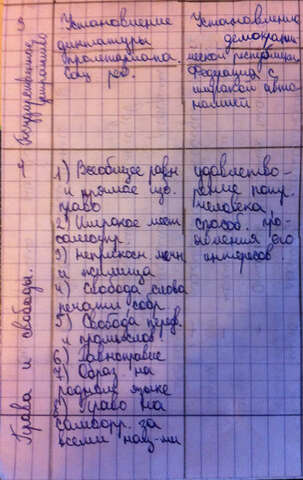 3
Государственное
Установление
диктатуры
пролетариата.
соц рев.
Установление
демократи-
ческой республики
Федерация с
широкой авто
номией
Права и свободы.
1) Всеобщее равн
и прямое изб.
право
2) Широкое мест
самоупр.
3) неприкосн. личн
и жилища
4) свобода слова
печати, собр.
5) Свобода перед.
и промыслов
6) Равноправие
7) Образ на
родном языке
8) Право на
самоопр. за
всеми нац-ми
удовлетво-
рение
человека,
способ. про-
явления его
интересов.